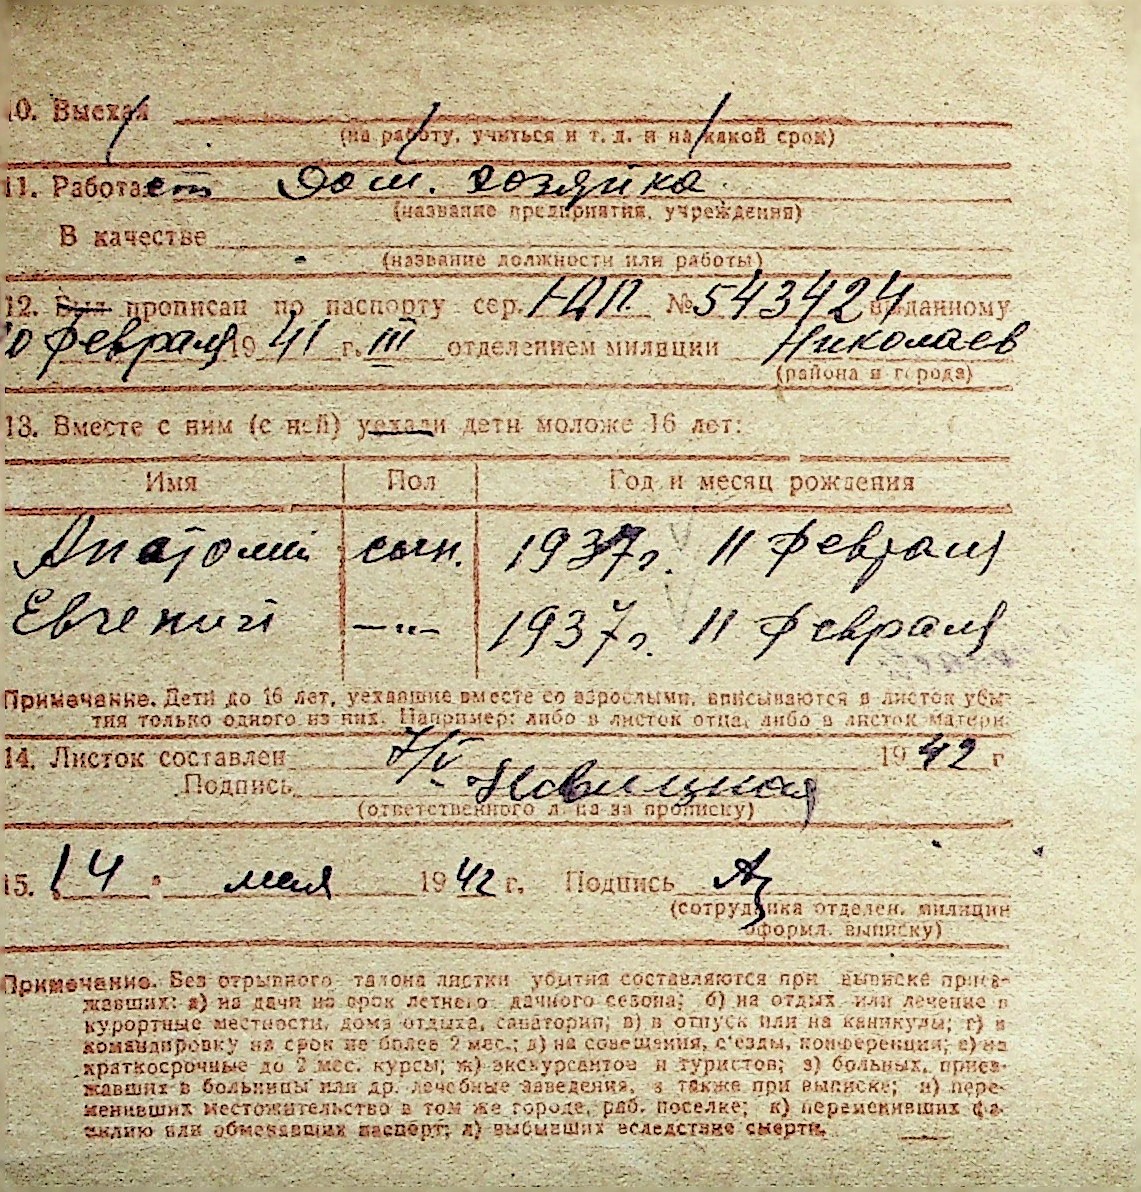 10. Выехал
(на работу, учиться и т. д. и на какой срок)
11. Работает Дом. хозяйка
(название предприятия, учреждения)
В качестве
(название должности или работы)
12. Был прописан по паспорту сер. № 543424 выданному
10 февраля 1941 г. III отделением милиции Николаев
(района и города)
13. Вместе с ним (с ней) уехали дети моложе 16 лет:
Имя Пол Год и месяц рождения
Анатолий сын. 1937г. 11 февраля
Евгений —"— 1937г. 11 февраля
Примечание. Дети до 16 лет, уехавшие вместе со взрослыми, вписываются в листок убы-
тия только одного из них. Например: либо в листок отца, либо в листок матери.
14. Листок составлен 7/V 1942 г
Подпись Новицкая
(ответственного лица за прописку)
15. 14 мая 1942 г. Подпись
(сотрудника отделен. милиции
оформл. выписку)
Примечание. Без отрывного талона листки убытия составляются при выписке приез-
жавших: а) на дачи на срок летнего дачного сезона; б) на отдых или лечение в
курортные местности, дома отдыха, санатории; в) в отпуск или на каникулы; г) в
командировку на срок не более 2 мес.; д) на совещания, с'езды, конференции; е) на
краткосрочные до 2 мес. курсы; ж) экскурсантов и туристов; з) больных, приез-
жавших в больницы или др. лечебные заведения, а также при выписке; и) пере-
менивших местожительство в том же городе, раб. поселке; к) переменивших фа-
милию или обменявших паспорт; л) выбывших вследствие смерти.